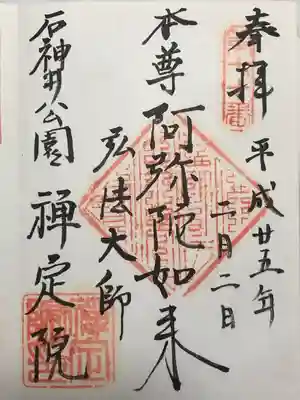 奉拝
平成廿五年
二月二日
本尊阿弥陀如来
弘法大師
石神井公園 禅定院